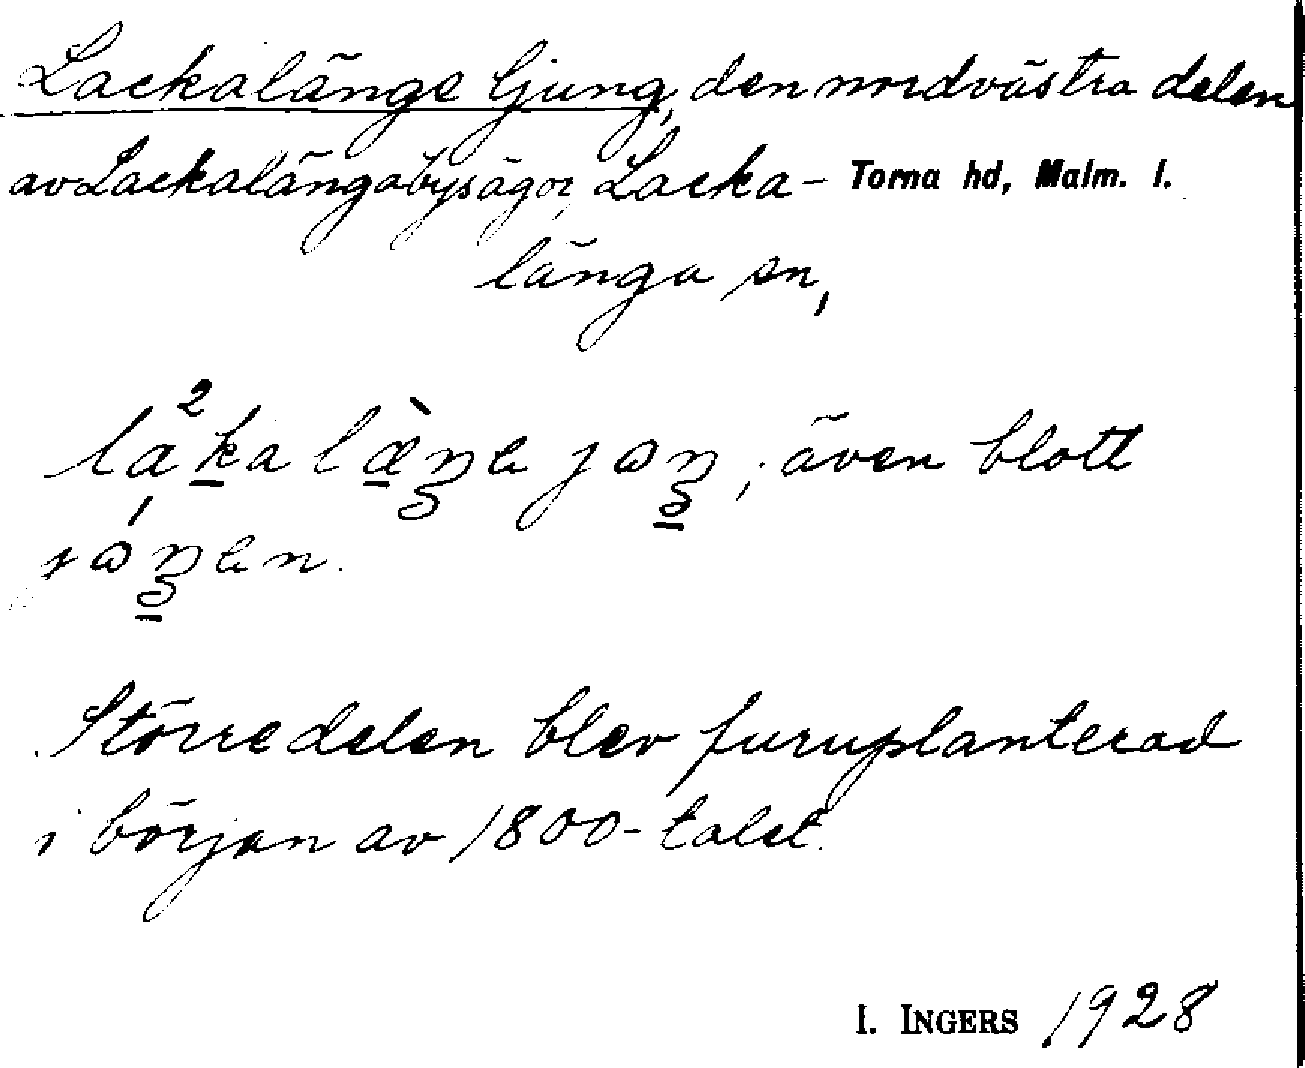 Lackalänge ljung, den nordvästra delen
av Lackalängabysägor, Lacka- Torna hd, Malm. l.
länga sn,
la²ka læ̀ŋe jɷŋ; även blott
jɷ́ŋen.
Större delen blev furuplanterad
i början av 1800-talet.
I. INGERS 1928